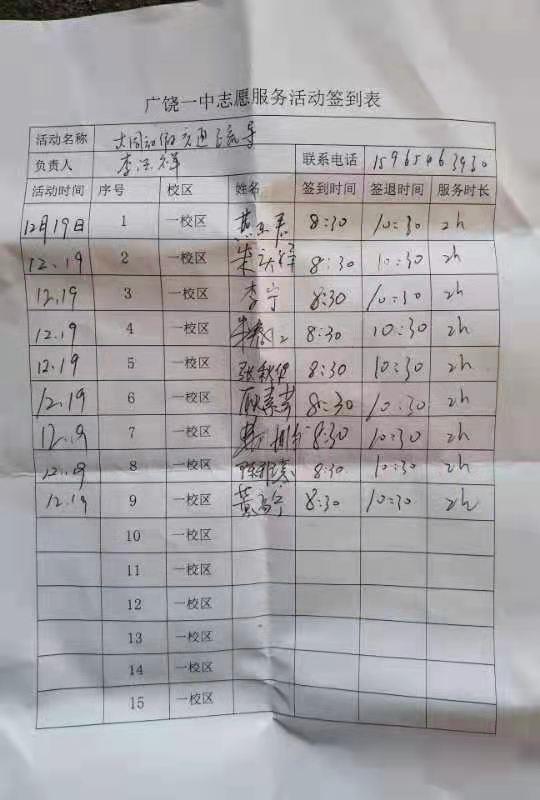 广饶一中志愿服务活动签到表
活动名称 大周动假交通疏导
负责人 李 祥 联系电话 15965463930
活动时间 序号 校区 姓名 签到时间 签退时间 服务时长
12月19日 1 一校区 8:30 10:30 2h
12.19 2 一校区 朱 8:30 10:30 2h
12.19 3 一校区 李宁 8:30 10:30 2h
12.19 4 一校区 8:30 10:30 2h
12.19 5 一校区 张秋 8:30 10:30 2h
12.19 6 一校区 素芳 8:30 10:30 2h
12.19 7 一校区 8:30 10:30 2h
12.19 8 一校区 8:30 10:30 2h
12.19 9 一校区 黄 8:30 10:30 2h
10 一校区
11 一校区
12 一校区
13 一校区
14 一校区
15 一校区